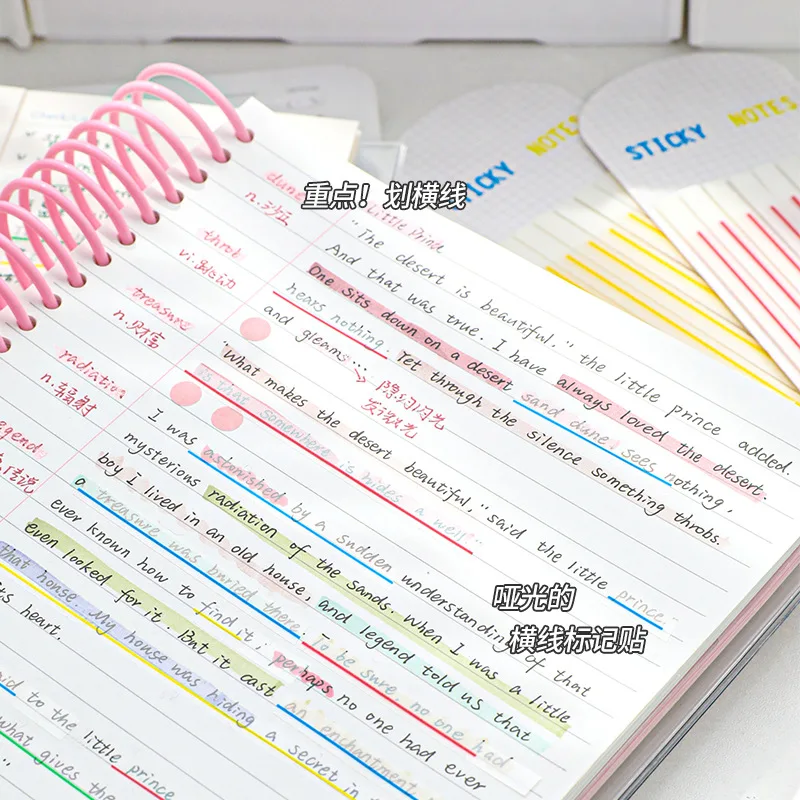 STICKY NOTES
ICKY NOTES
重点！划横线
dune
n.沙丘
throb
treasure
n.财富
radiation
n.辐射
egend
Little Prince
"The desert is beautiful." the little prince added.
And that was true. I have always loved the desert.
One sits down on a desert sand dune, sees nothing,
hears nothing. Yet through the silence something throbs.
and gleams...
隐约闪光
发微光
"What makes the desert beautiful," said the little prince..
is that somewhere is hides a well..."
I was astonished by a sudden understanding of that
mysterious radiation of the sands. When I was a little
boy I lived in an old house, and legend told us that
a treasure was buried there. To be sure, no one had
ever known how to find it; perhaps no one had ever
even looked for it. But it cast an enchantment
that house. My house was hiding a secret in
its heart.
aid to the little prince
what gives the
哑光的
横线标记贴